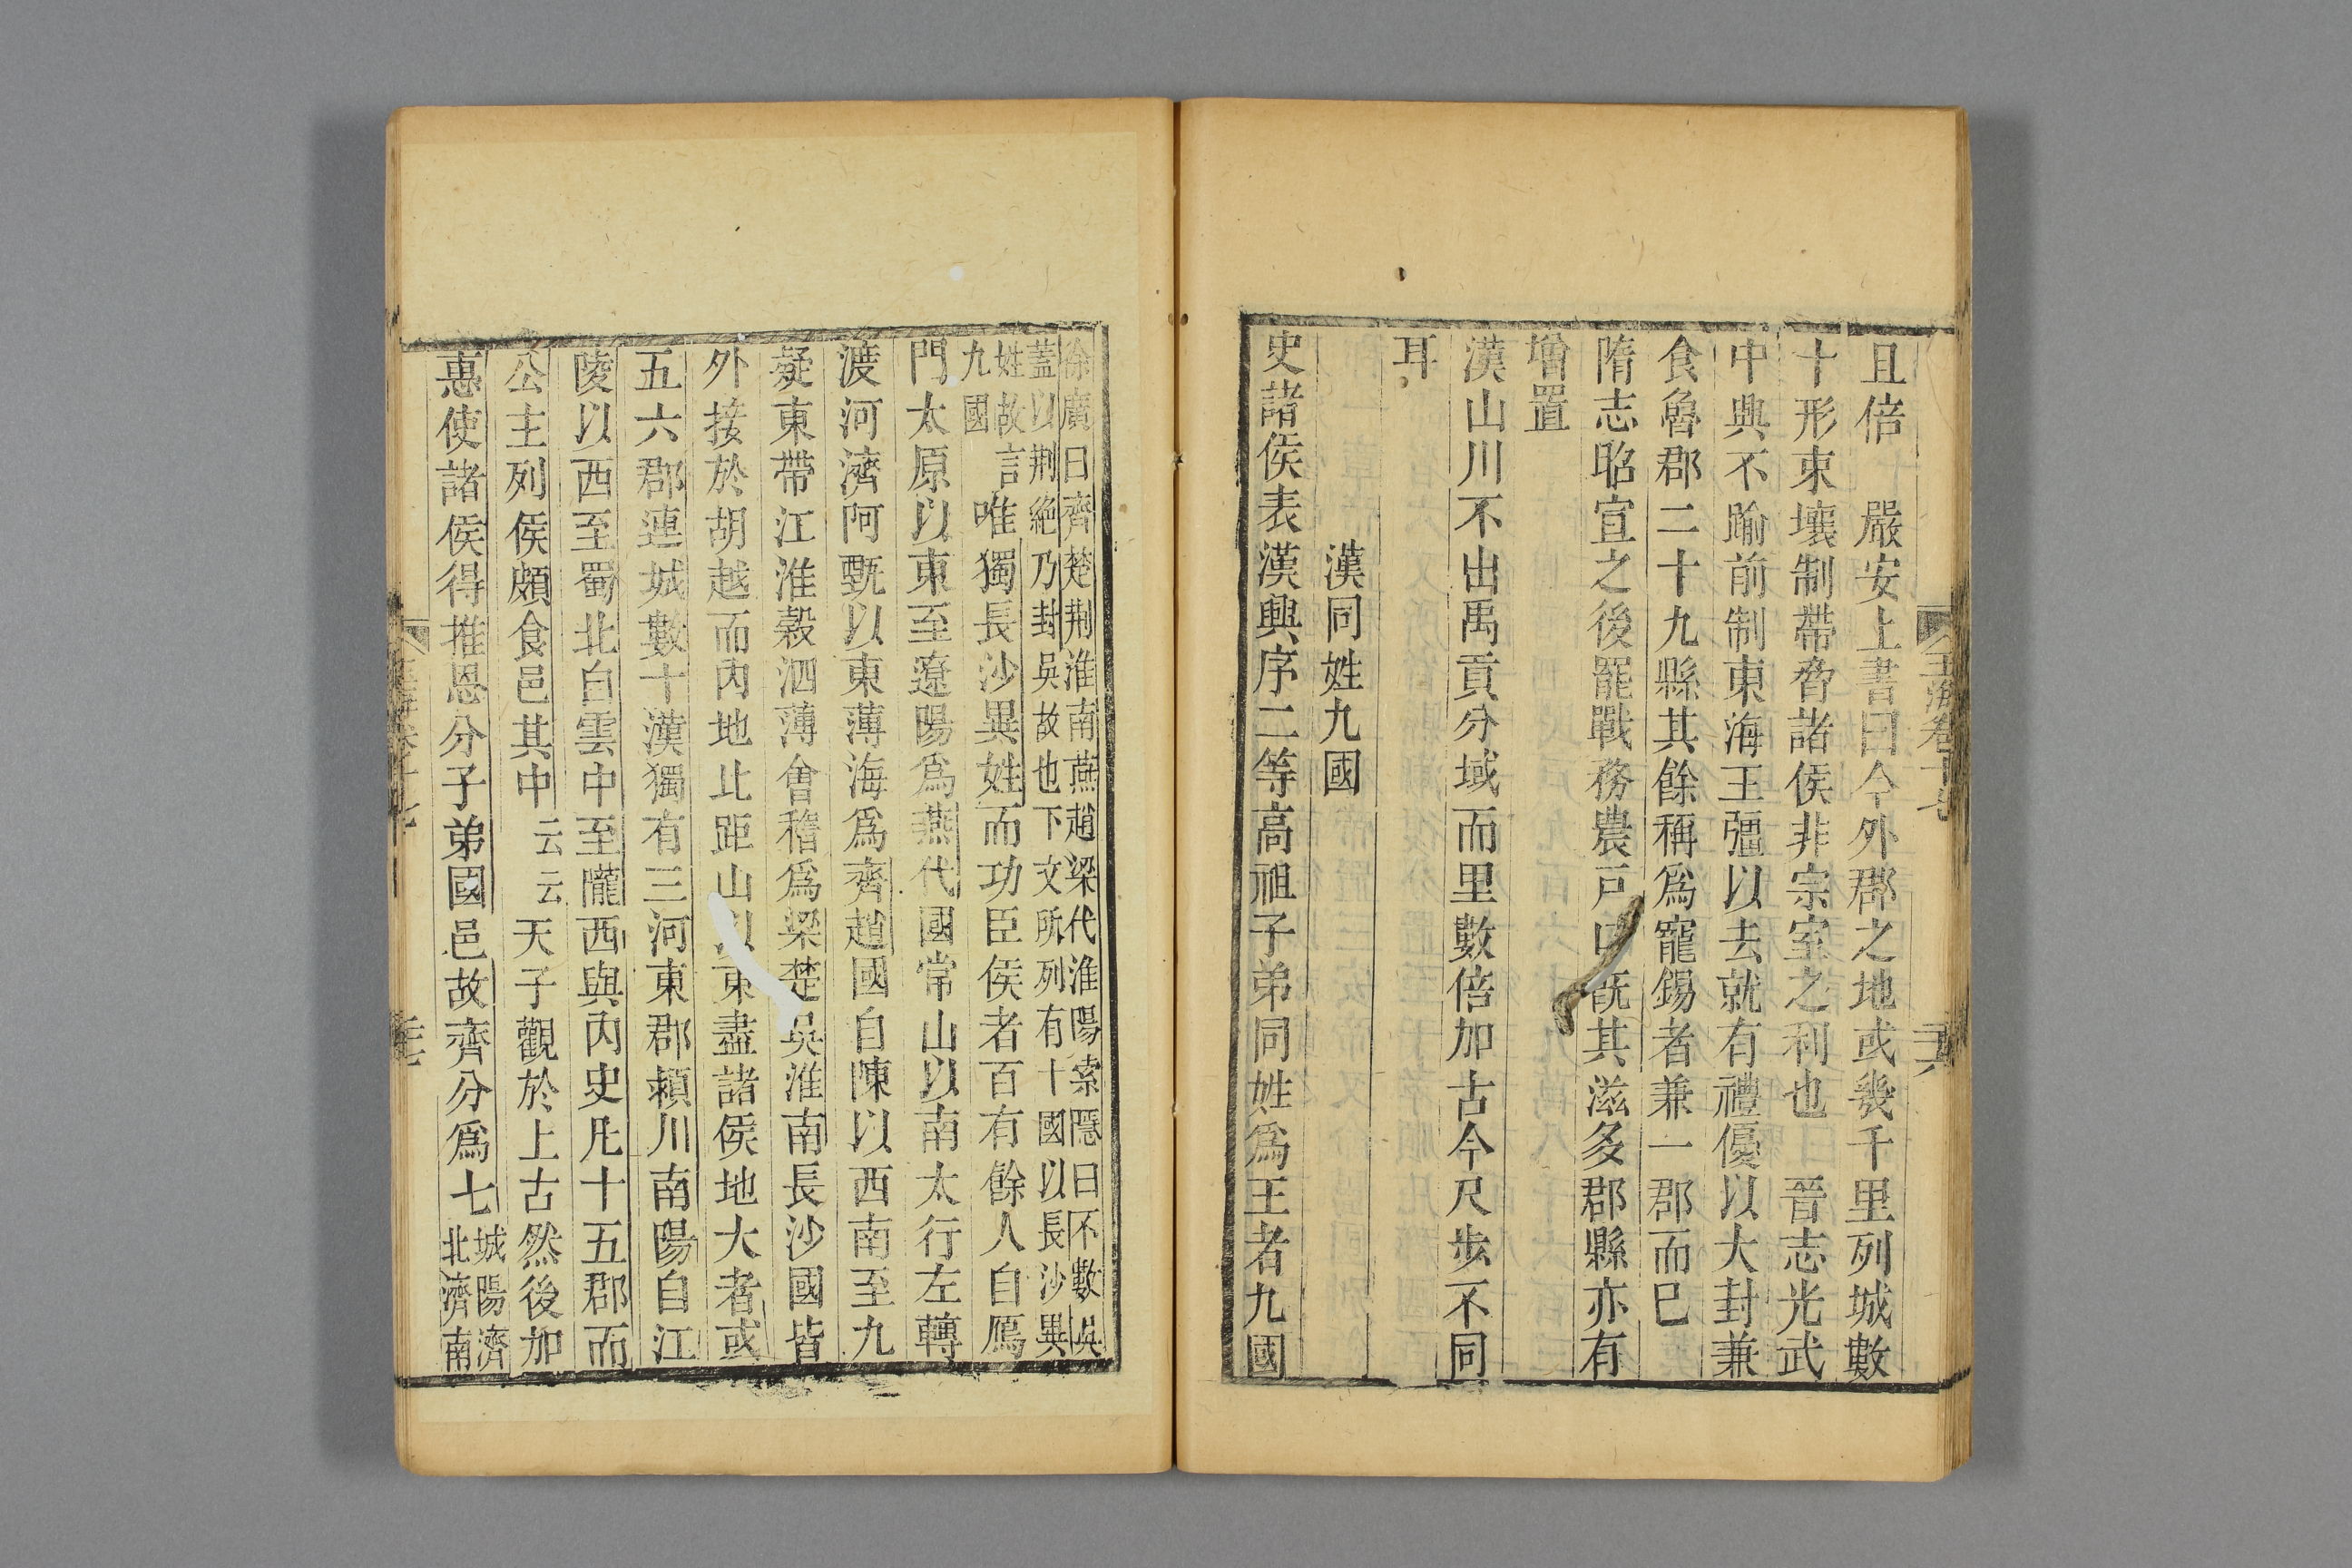 且倍　嚴安上書曰今外郡之地或幾千里列城數
十形束壤制帶脅諸侯非宗室之利也　晉志光武
中興不踰前制東海王彊以去就有禮優以大封兼
食魯郡二十九縣其餘稱爲寵錫者兼一郡而已
隋志昭宣之後罷戰務農戶口旣其滋多郡縣亦有
增置
漢山川不出禹貢分域而里數倍加古今尺步不同
耳
漢同姓九國
史諸侯表漢興序二等高祖子弟同姓爲王者九國
徐廣曰齊楚荆淮南燕趙梁代淮陽索隱曰不數吳
蓋以荆絕乃封吳故也下文所列有十國以長沙異
姓故言
九國
唯獨長沙異姓而功臣侯者百有餘人自鴈
門太原以東至遼陽爲燕代國常山以南太行左轉
渡河濟阿甄以東薄海爲齊趙國自陳以西南至九
疑東帶江淮穀泗薄會稽爲梁楚吳淮南長沙國皆
外接於胡越而內地北距山以東盡諸侯地大者或
五六郡連城數十漢獨有三河東郡潁川南陽自江
陵以西至蜀北自雲中至隴西與內史凡十五郡而
公主列侯頗食邑其中云云天子觀於上古然後加
惠使諸侯得推恩分子弟國邑故齊分爲七
城陽濟
北濟南
玉海卷十七